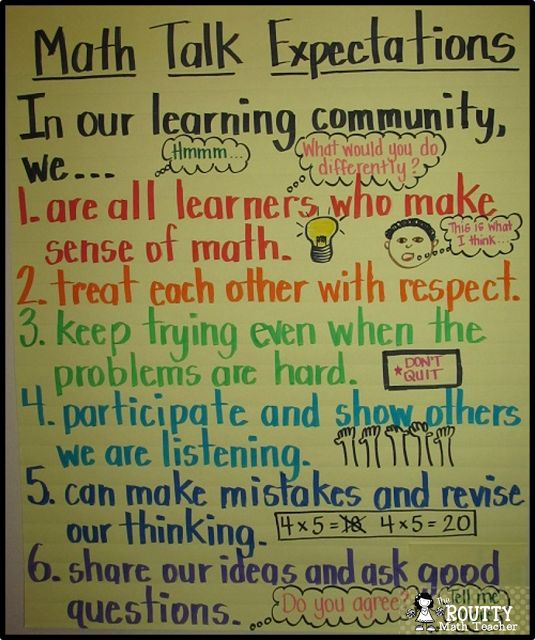 Math Talk Expectations
In our learning community,
we...
Hmmm...
What would you do
differently?
1. are all learners who make
sense of math.
This is what
I think...
2. treat each other with respect.
3. keep trying even when the
problems are hard.
*DON'T
QUIT
4. participate and show others
we are listening.
5. can make mistakes and revise
our thinking.
4 x 5 = 18 4 x 5 = 20
6. share our ideas and ask good
questions.
Do you agree?
Tell me
The
ROUTTY
Math Teacher